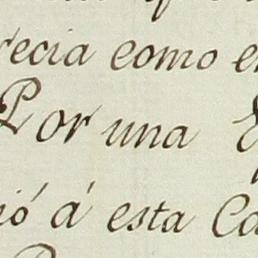 recia como e
Por una
ió á esta Ca